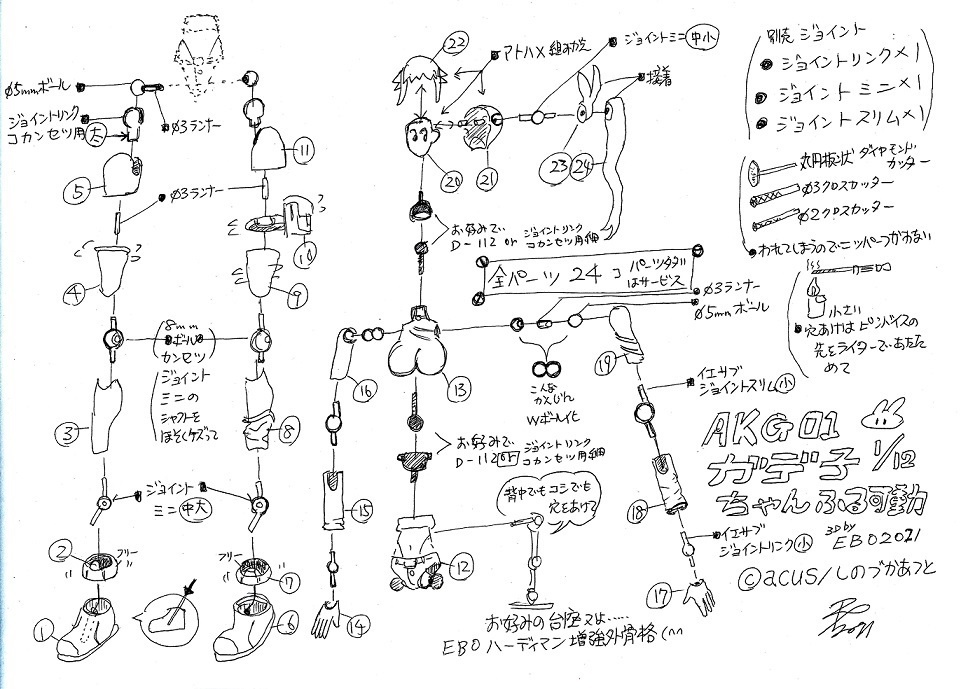 ø5mmボール
ジョイントリンク
コカンセツ用 大
ø3ランナー
5
11
ø3ランナー
4
10
9
8mm
ボール
カンセツ
ジョイント
ミニの
シャフトを
ほそくケズって
3
8
ジョイント
ミニ 中大
2
フリー
フリー
7
1
6
22
アトハメ組みかえ
ジョイントミニ 中小
接着
20
21
23
24
お好みで
D-112 or ジョイントリンク
コカンセツ用 細
全パーツ 24コ パーツタダ
はサービス
ø3ランナー
ø5mmボール
16
13
こんな
かんじん
Wボール化
19
イエサブ
ジョイントスリム 小
お好みで
D-112 or ジョイントリンク
コカンセツ用 細
15
背中でもコシでも
穴をあけて
12
18
イエサブ
ジョイントリンク 小
14
17
お好みの台座又は……
EBOハーディマン増強外骨格(^^
別売 ジョイント
ジョイントリンク×1
ジョイント ミニ×1
ジョイントスリム×1
丸円板状 ダイヤモンド
カッター
ø3クロスカッター
ø2クロスカッター
われてしまうのでニッパーつかわない
小さい
穴あけはピンバイスの
先をライターであたた
めて
AKG01
ガデ子 1/12
ちゃんふる可動
3D by
EBO2021
©acus/しのづかあつと